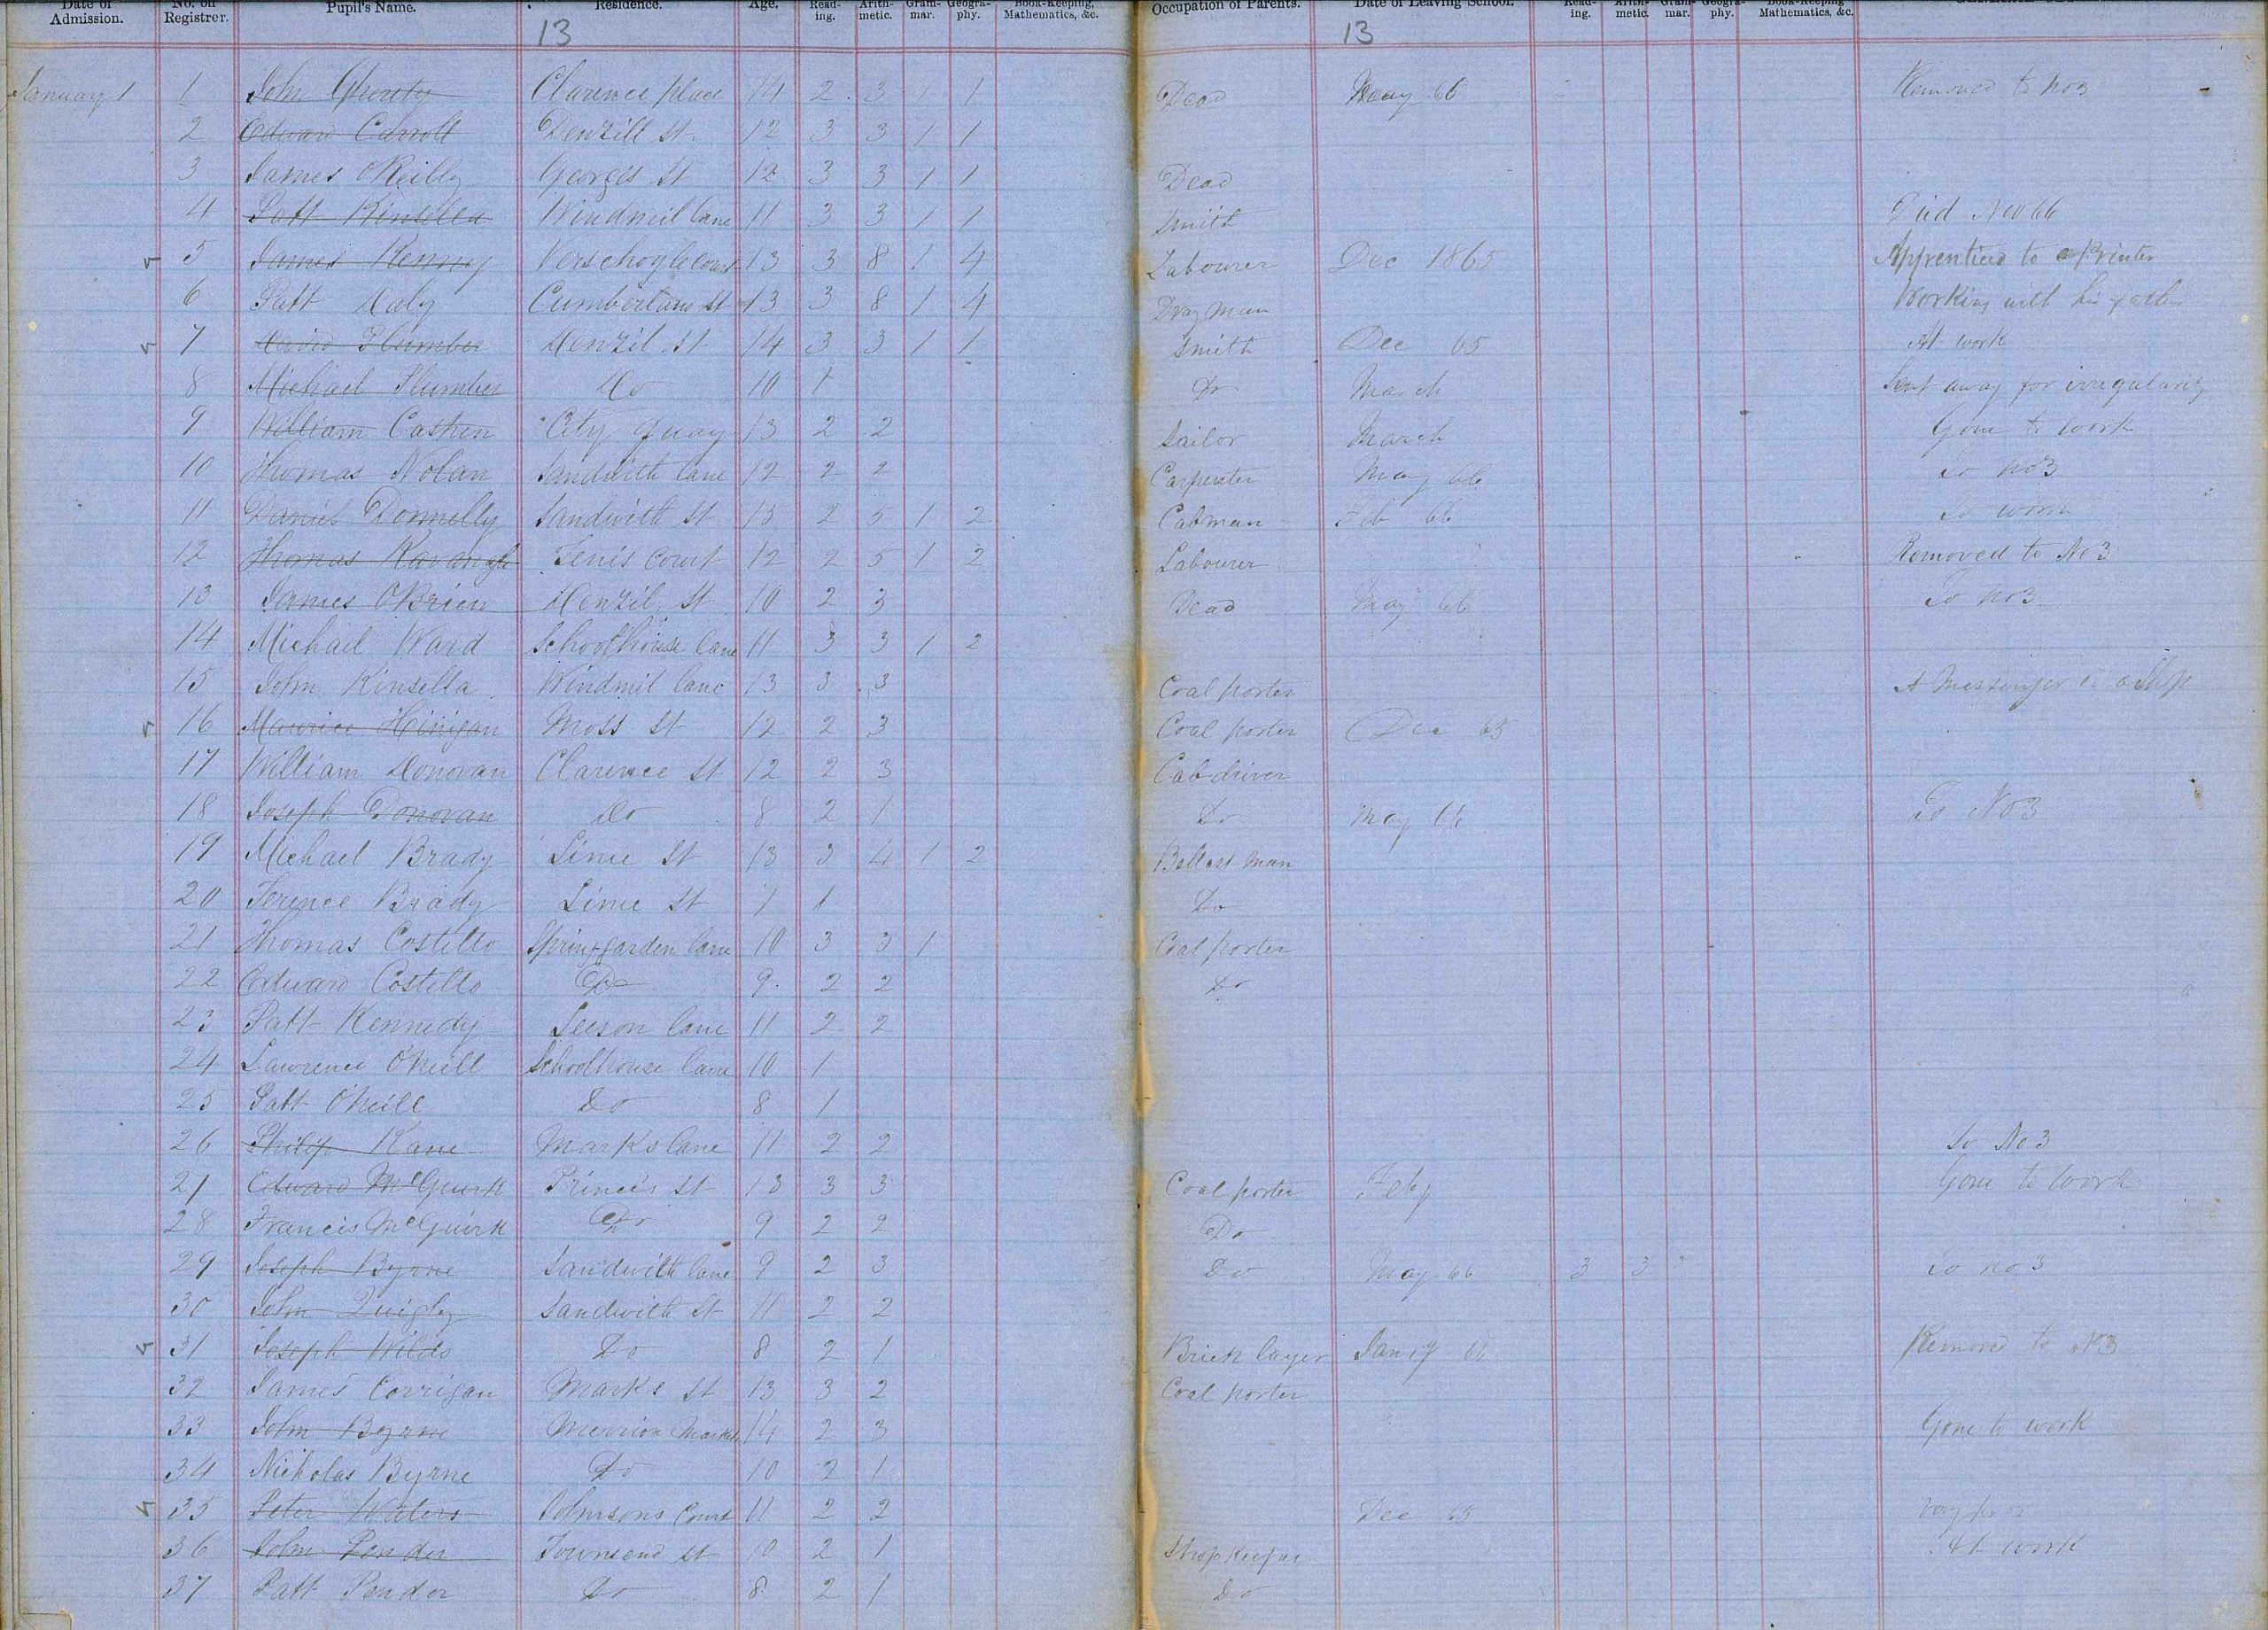 Date of Admission. No. on Registrer. Pupil's Name. Residence. Age. Read-ing. Arith-metic. Gram-mar. Geogra-phy. Book-Keeping, Mathematics, &c. Occupation of Parents. Date of Leaving School. Read-ing. Arith-metic. Gram-mar. Geogra-phy. Book-Keeping Mathematics, &c.
13 13
January 1 1 John Clarence place 14 2 3 1 1 Dead May 66 Removed to No 3
2 Edward Carroll Denzill St. 12 3 3 1 1
3 James O'Reilly Georges St 12 3 3 1 1 Dead
4 Patt Kinsella Windmil lane 11 3 3 1 1 Smith Died Nov 66
5 James Kenny Verschoyle court 13 3 8 1 4 Labourer Dec 1865 Apprenticed to a Printer
6 Patt Daly Cumberland St 13 3 8 1 4 Dray man Working with his father
7 David Plumber Denzil St 14 3 3 1 1 Smith Dec 65 At work
8 Michael Plumber Do 10 1 Do March Sent away for irregularity
9 William Cashen City quay 13 2 2 Sailor March Gone to work
10 Thomas Nolan Sandwith lane 12 2 2 Carpenter May 66 To No 3
11 Daniel Donnelly Sandwith St 15 2 5 1 2 Cabman Feb 66 To work
12 Thomas Kavanagh Tenis Court 12 2 5 1 2 Labourer Removed to No 3
13 James O'Brien Denzil St 10 2 3 Dead May 66 To No 3
14 Michael Ward Schoolhouse lane 11 3 3 1 2
15 John Kinsella Windmil lane 13 3 3 Coal porter A Messenger in a Shop
16 Maurice Hinigan Moss St 12 2 3 Coal porter Dec 65
17 William Donovan Clarence St 12 2 3 Cab driver
18 Joseph Donovan Do 8 2 1 Do May 66 To No 3
19 Michael Brady Lime St 13 3 4 1 2 Ballast Man
20 Terence Brady Lime St 7 1 Do
21 Thomas Costello Spring-garden lane 10 3 3 1 Coal porter
22 Edward Costello Do 9 2 2 Do
23 Patt Kennedy Leeson lane 11 2 2
24 Lawrence O'Neill Schoolhouse lane 10 1
25 Patt O'Neill Do 8 1
26 Philip Kane Marks lane 11 2 2 To No 3
27 Edward McGuirk Princes St 13 3 3 Coal porter Feby Gone to work
28 Francis McGuirk Do 9 2 2 Do
29 Joseph Byrne Sandwith lane 9 2 3 Do May 66 3 3 To No 3
30 John Quigly Sandwith St 11 2 2
31 Joseph Wilds Do 8 2 1 Brick layer Jan 17 Removed to No 3
32 James Corrigan Marks St 13 3 2 Coal porter
33 John Byrne Merrion Market 14 2 3 Gone to work
34 Nicholas Byrne Do 10 2 1
35 Peter Waters Johnsons Court 11 2 2 Dec 65 Very poor
36 John Pender Townsend St 10 2 1 Shop Keeper At work
37 Patt Pender Do 8 2 1 Do